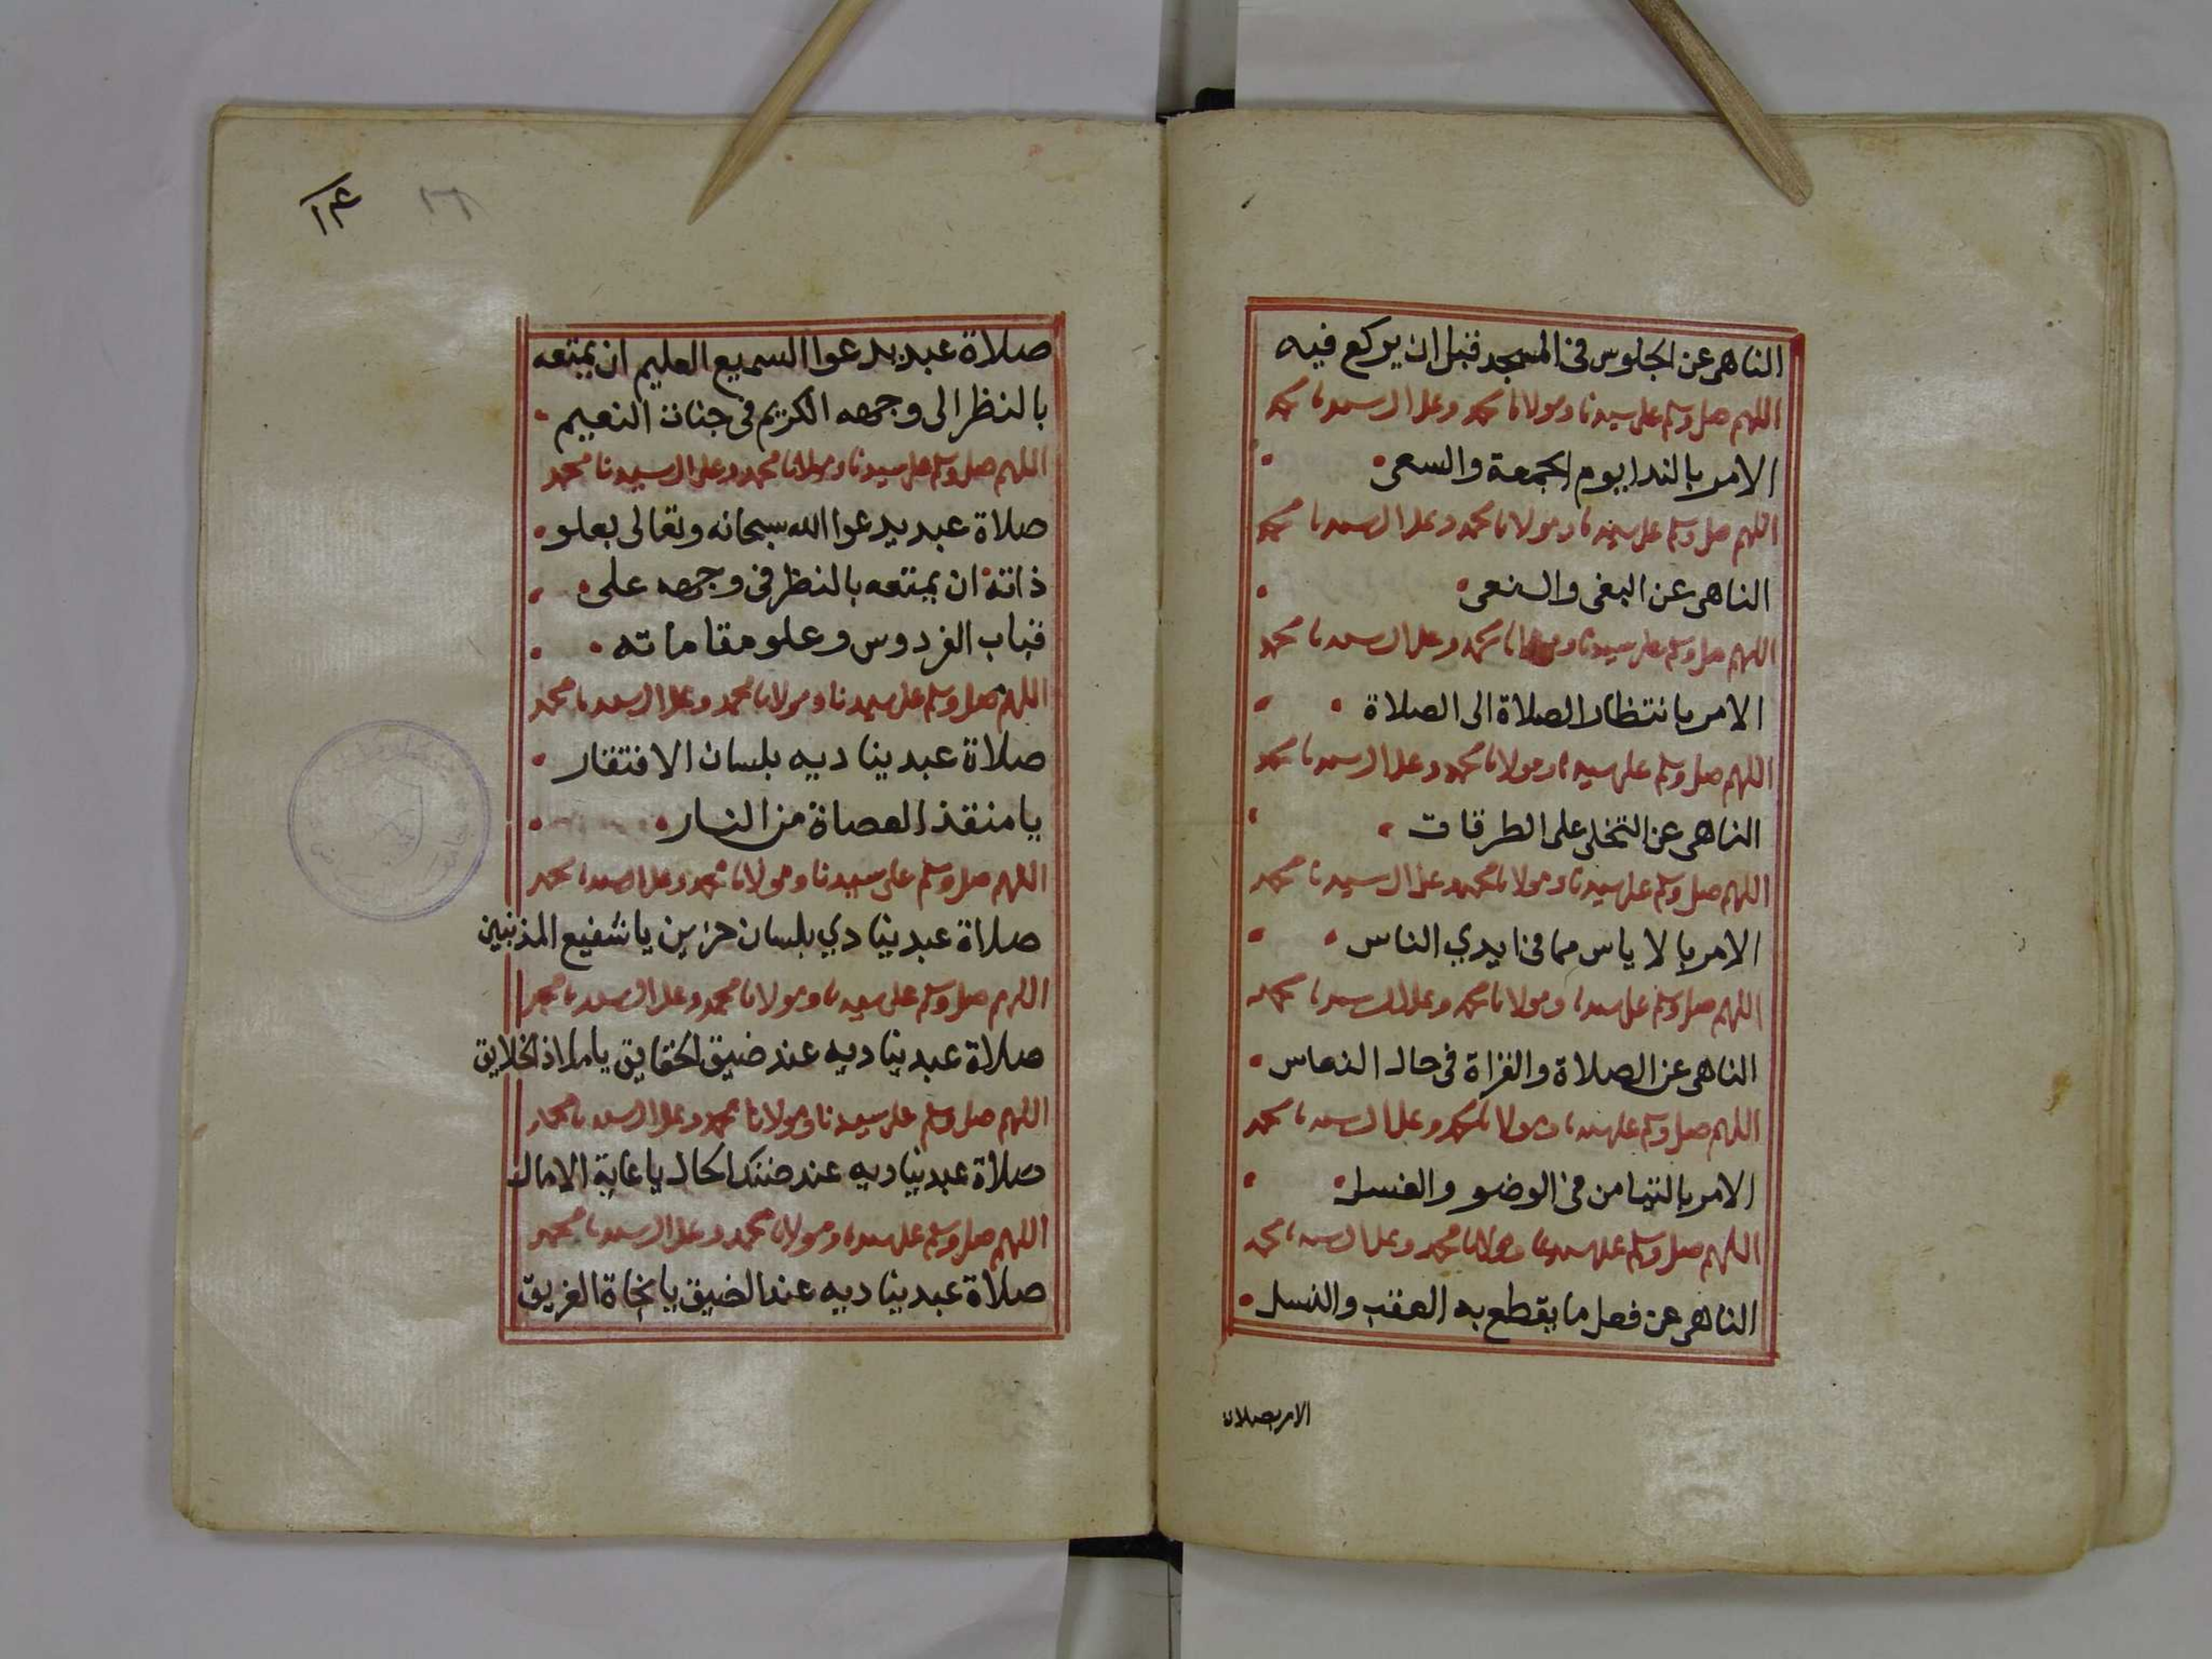 الناهى عن الجلوس فى المسجد قبل ان يركع فيه
اللهم صل وسلم على سيدنا ومولانا محمد وعلى ال سيدنا محمد
الامر بالندا يوم الجمعة والسعى
اللهم صل وسلم على سيدنا ومولانا محمد وعلى ال سيدنا محمد
الناهى عن البغى والنعى
اللهم صل وسلم على سيدنا ومولانا محمد وعلى ال سيدنا محمد
الامر بانتظار الصلاة الى الصلاة
اللهم صل وسلم على سيدنا ومولانا محمد وعلى ال سيدنا محمد
الناهى عن التخلى على الطرقات
اللهم صل وسلم على سيدنا ومولانا محمد وعلى ال سيدنا محمد
الامر بالاياس مما فى ايدي الناس
اللهم صل وسلم على سيدنا ومولانا محمد وعلى ال سيدنا محمد
الناهى عن الصلاة والقراة فى حال النعاس
اللهم صل وسلم على سيدنا ومولانا محمد وعلى ال سيدنا محمد
الامر بالتيامن فى الوضو والغسل
اللهم صل وسلم على سيدنا ومولانا محمد وعلى ال سيدنا محمد
الناهى عن فعل ما يقطع به العقب والنسل
الامر بصلاة
١٤
صلاة عبد يدعوا السميع العليم ان يمتعه
بالنظر الى وجهه الكريم فى جنات النعيم
اللهم صل وسلم على سيدنا ومولانا محمد وعلى ال سيدنا محمد
صلاة عبد يدعوا الله سبحانه وتعالى بعلو
ذاته ان يمتعه بالنظر فى وجهه على
قباب الفردوس وعلو مقاماته
اللهم صل وسلم على سيدنا ومولانا محمد وعلى ال سيدنا محمد
صلاة عبد يناديه بلسان الافتقار
يا منقذ العصاة من النار
اللهم صل وسلم على سيدنا ومولانا محمد وعلى ال سيدنا محمد
صلاة عبد ينادي بلسان حزين يا شفيع المذنبين
اللهم صل وسلم على سيدنا ومولانا محمد وعلى ال سيدنا محمد
صلاة عبد يناديه عند ضيق الحقايق يا ملاذ الخلايق
اللهم صل وسلم على سيدنا ومولانا محمد وعلى ال سيدنا محمد
صلاة عبد يناديه عند ضنك الحال يا غاية الامال
اللهم صل وسلم على سيدنا ومولانا محمد وعلى ال سيدنا محمد
صلاة عبد يناديه عند الضيق يا نجاة الغريق